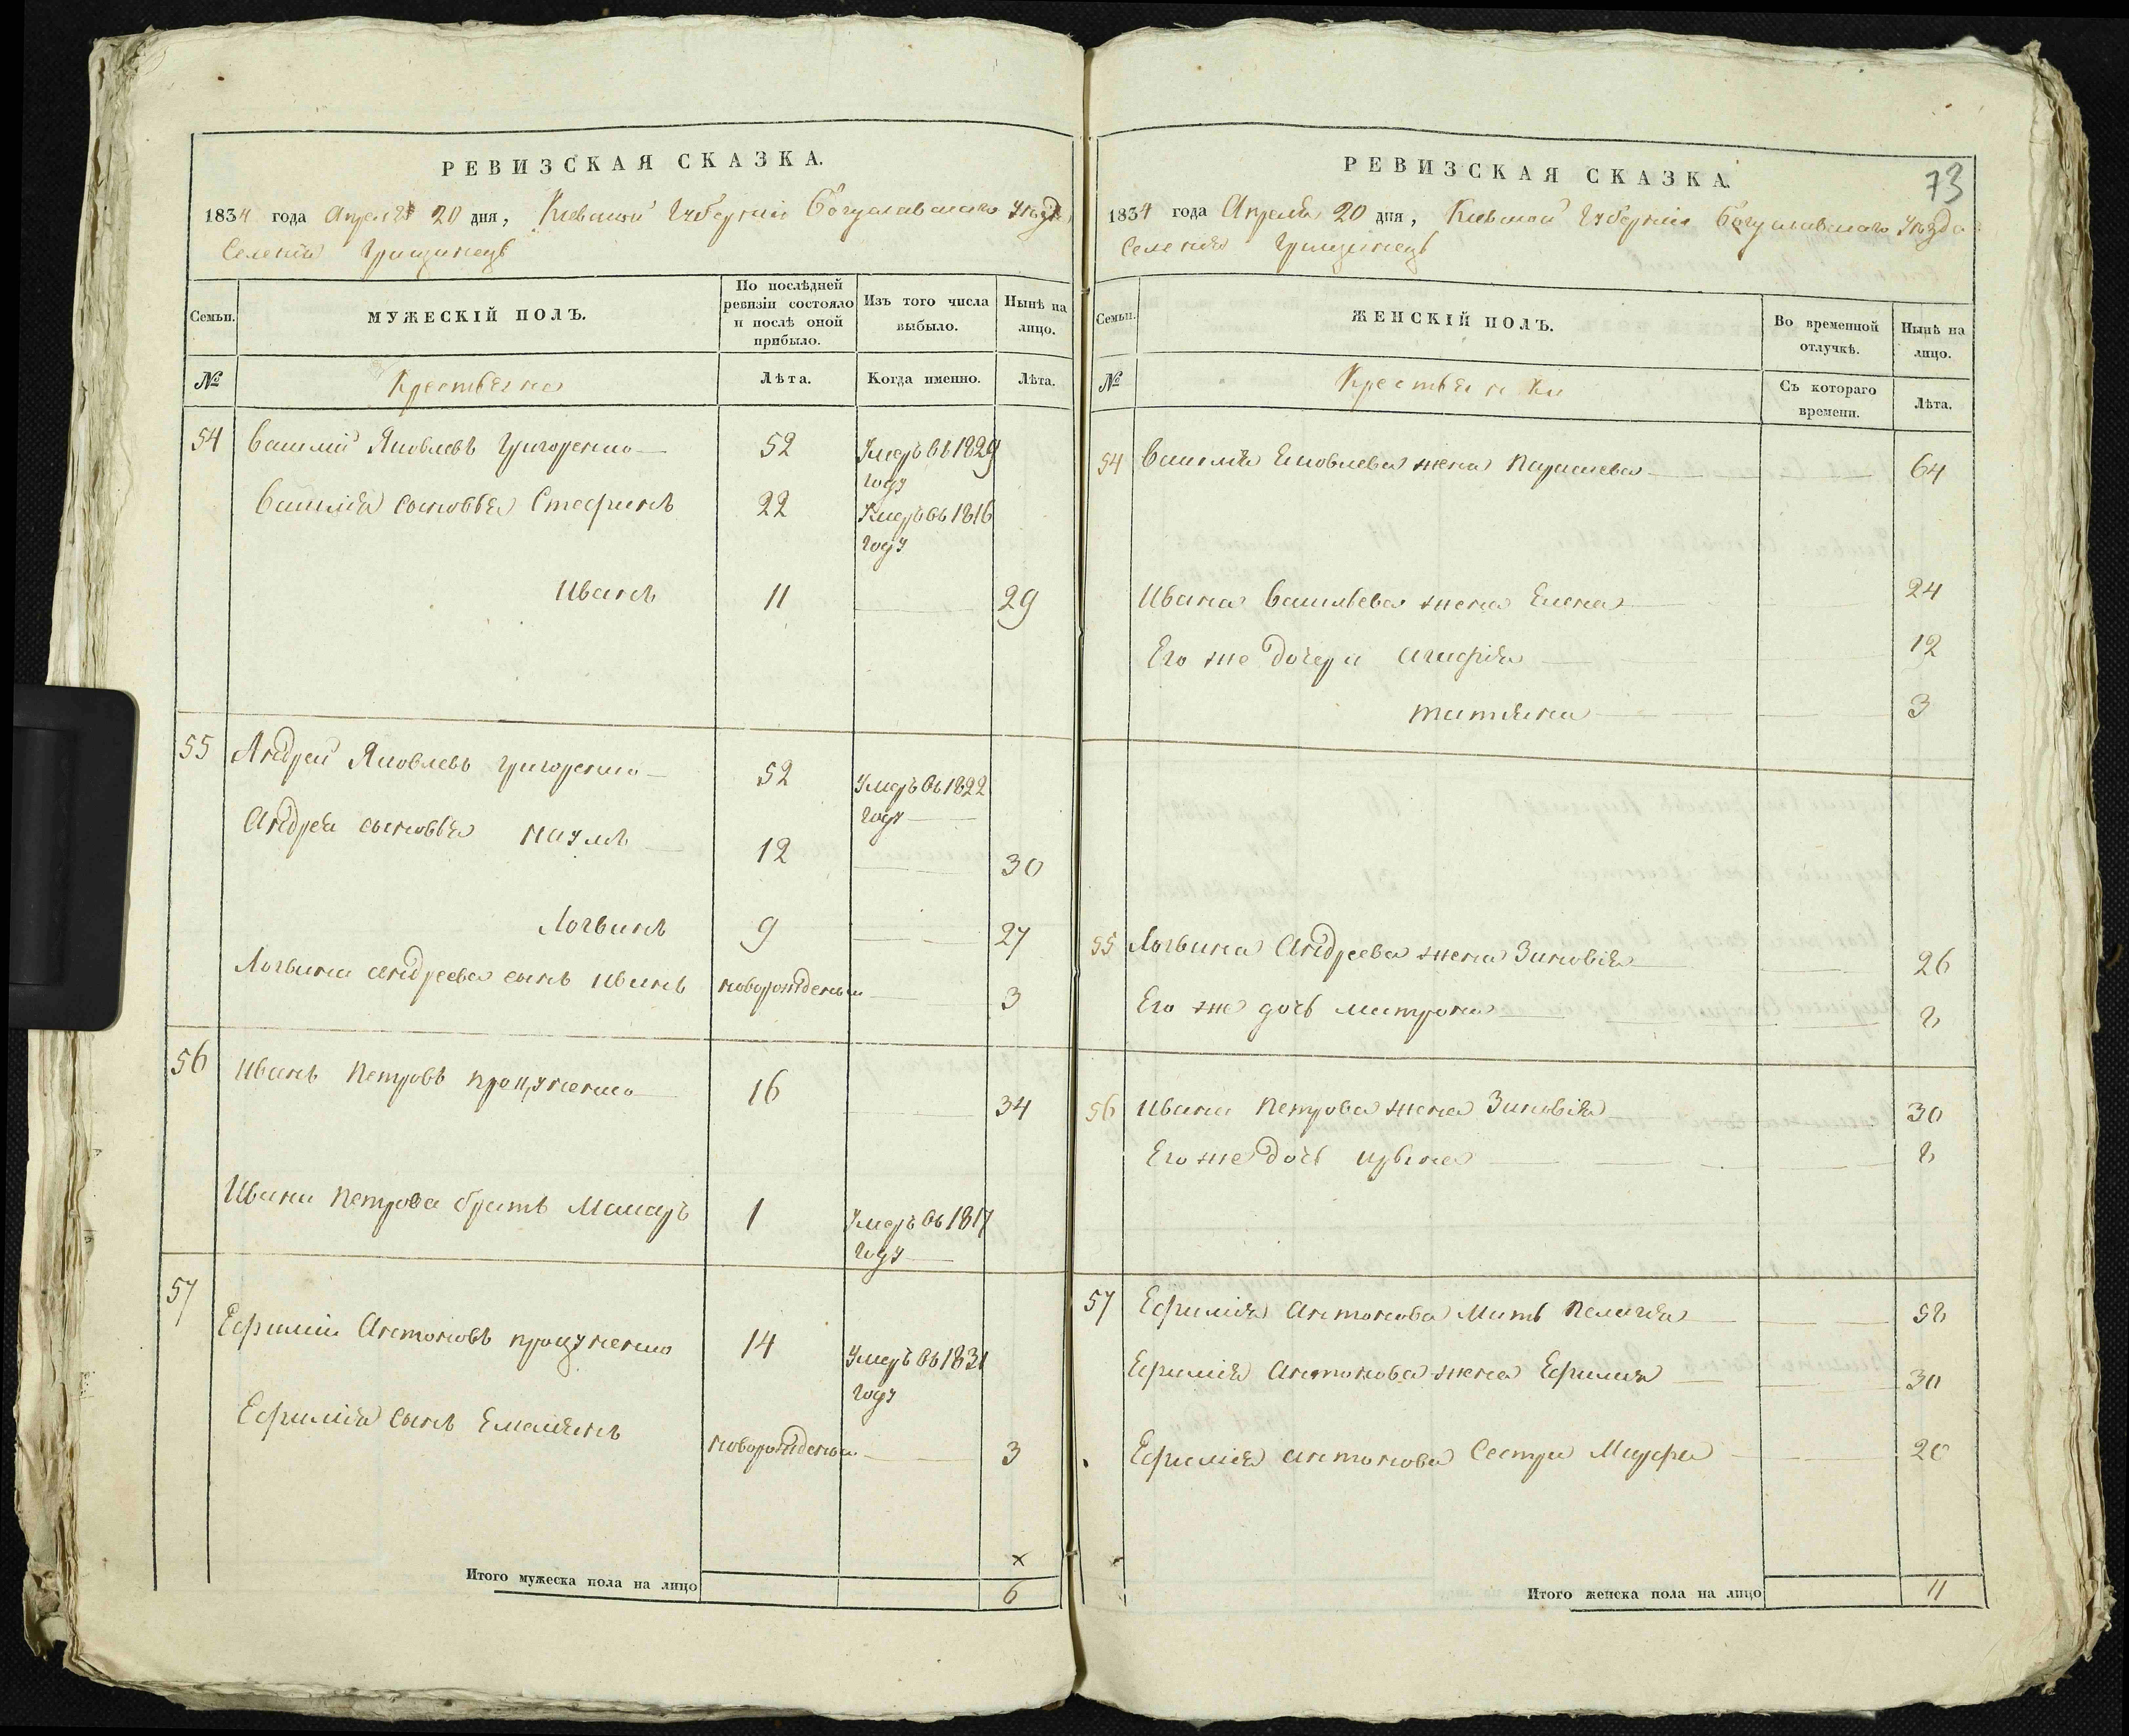 РЕВИЗСКАЯ СКАЗКА.
1834 года Апреля 20 дня, Киевской Губернии Богуславскаго Уезда
Селения Грищинецъ
Семьи.
МУЖЕСКІЙ ПОЛЪ.
По послѣдней ревизіи состояло и послѣ оной прибыло.
Изъ того числа выбыло.
Нынѣ на лицо.
№
Крестьяна
Лѣта.
Когда именно.
Лѣта.
54 Василий Яковлевъ Григоренко 52 Умеръ въ 1829
году
Василия сыновья Стефанъ 22 Умеръ въ 1816
году
Иванъ 11 29
55 Андрей Яковлевъ Григоренко 52 Умеръ въ 1822
году
Андрея сыновья Наумъ 12 30
Логвинъ 9 27
Логвина андреева сынъ Иванъ новорожденый 3
56 Иванъ Петровъ Процуненко 16 34
Ивана Петрова братъ Макаръ 1 Умеръ въ 1817
году
57
Ефимий Антоновъ Процуненко 14 Умеръ въ 1831
году
Ефимия сынъ Емельянъ новорожденый 3
×
Итого мужеска пола на лицо 6
73
РЕВИЗСКАЯ СКАЗКА.
1834 года Апреля 20 дня, Киевской Губернии Богуславскаго Уезда
Селения Грищинецъ
Семьи.
ЖЕНСКІЙ ПОЛЪ.
Во временной отлучкѣ.
Нынѣ на лицо.
№
Крестьянки
Съ котораго времени.
Лѣта.
54 Василия Яковлева жена Параскева 64
Ивана Васильева жена Елена 24
Его же дочери Агафия 12
Татияна 3
55 Логвина Андреева жена Зиновия 26
Его же дочь Матрона 8
56 Ивана Петрова жена Зиновия 30
Его же дочь 8
57 Ефимия Антонова Мать Пелагия 58
Ефимия Антонова жена Ефимия 30
Ефимия Антонова Сестра Марфа 20
Итого женска пола на лицо 11